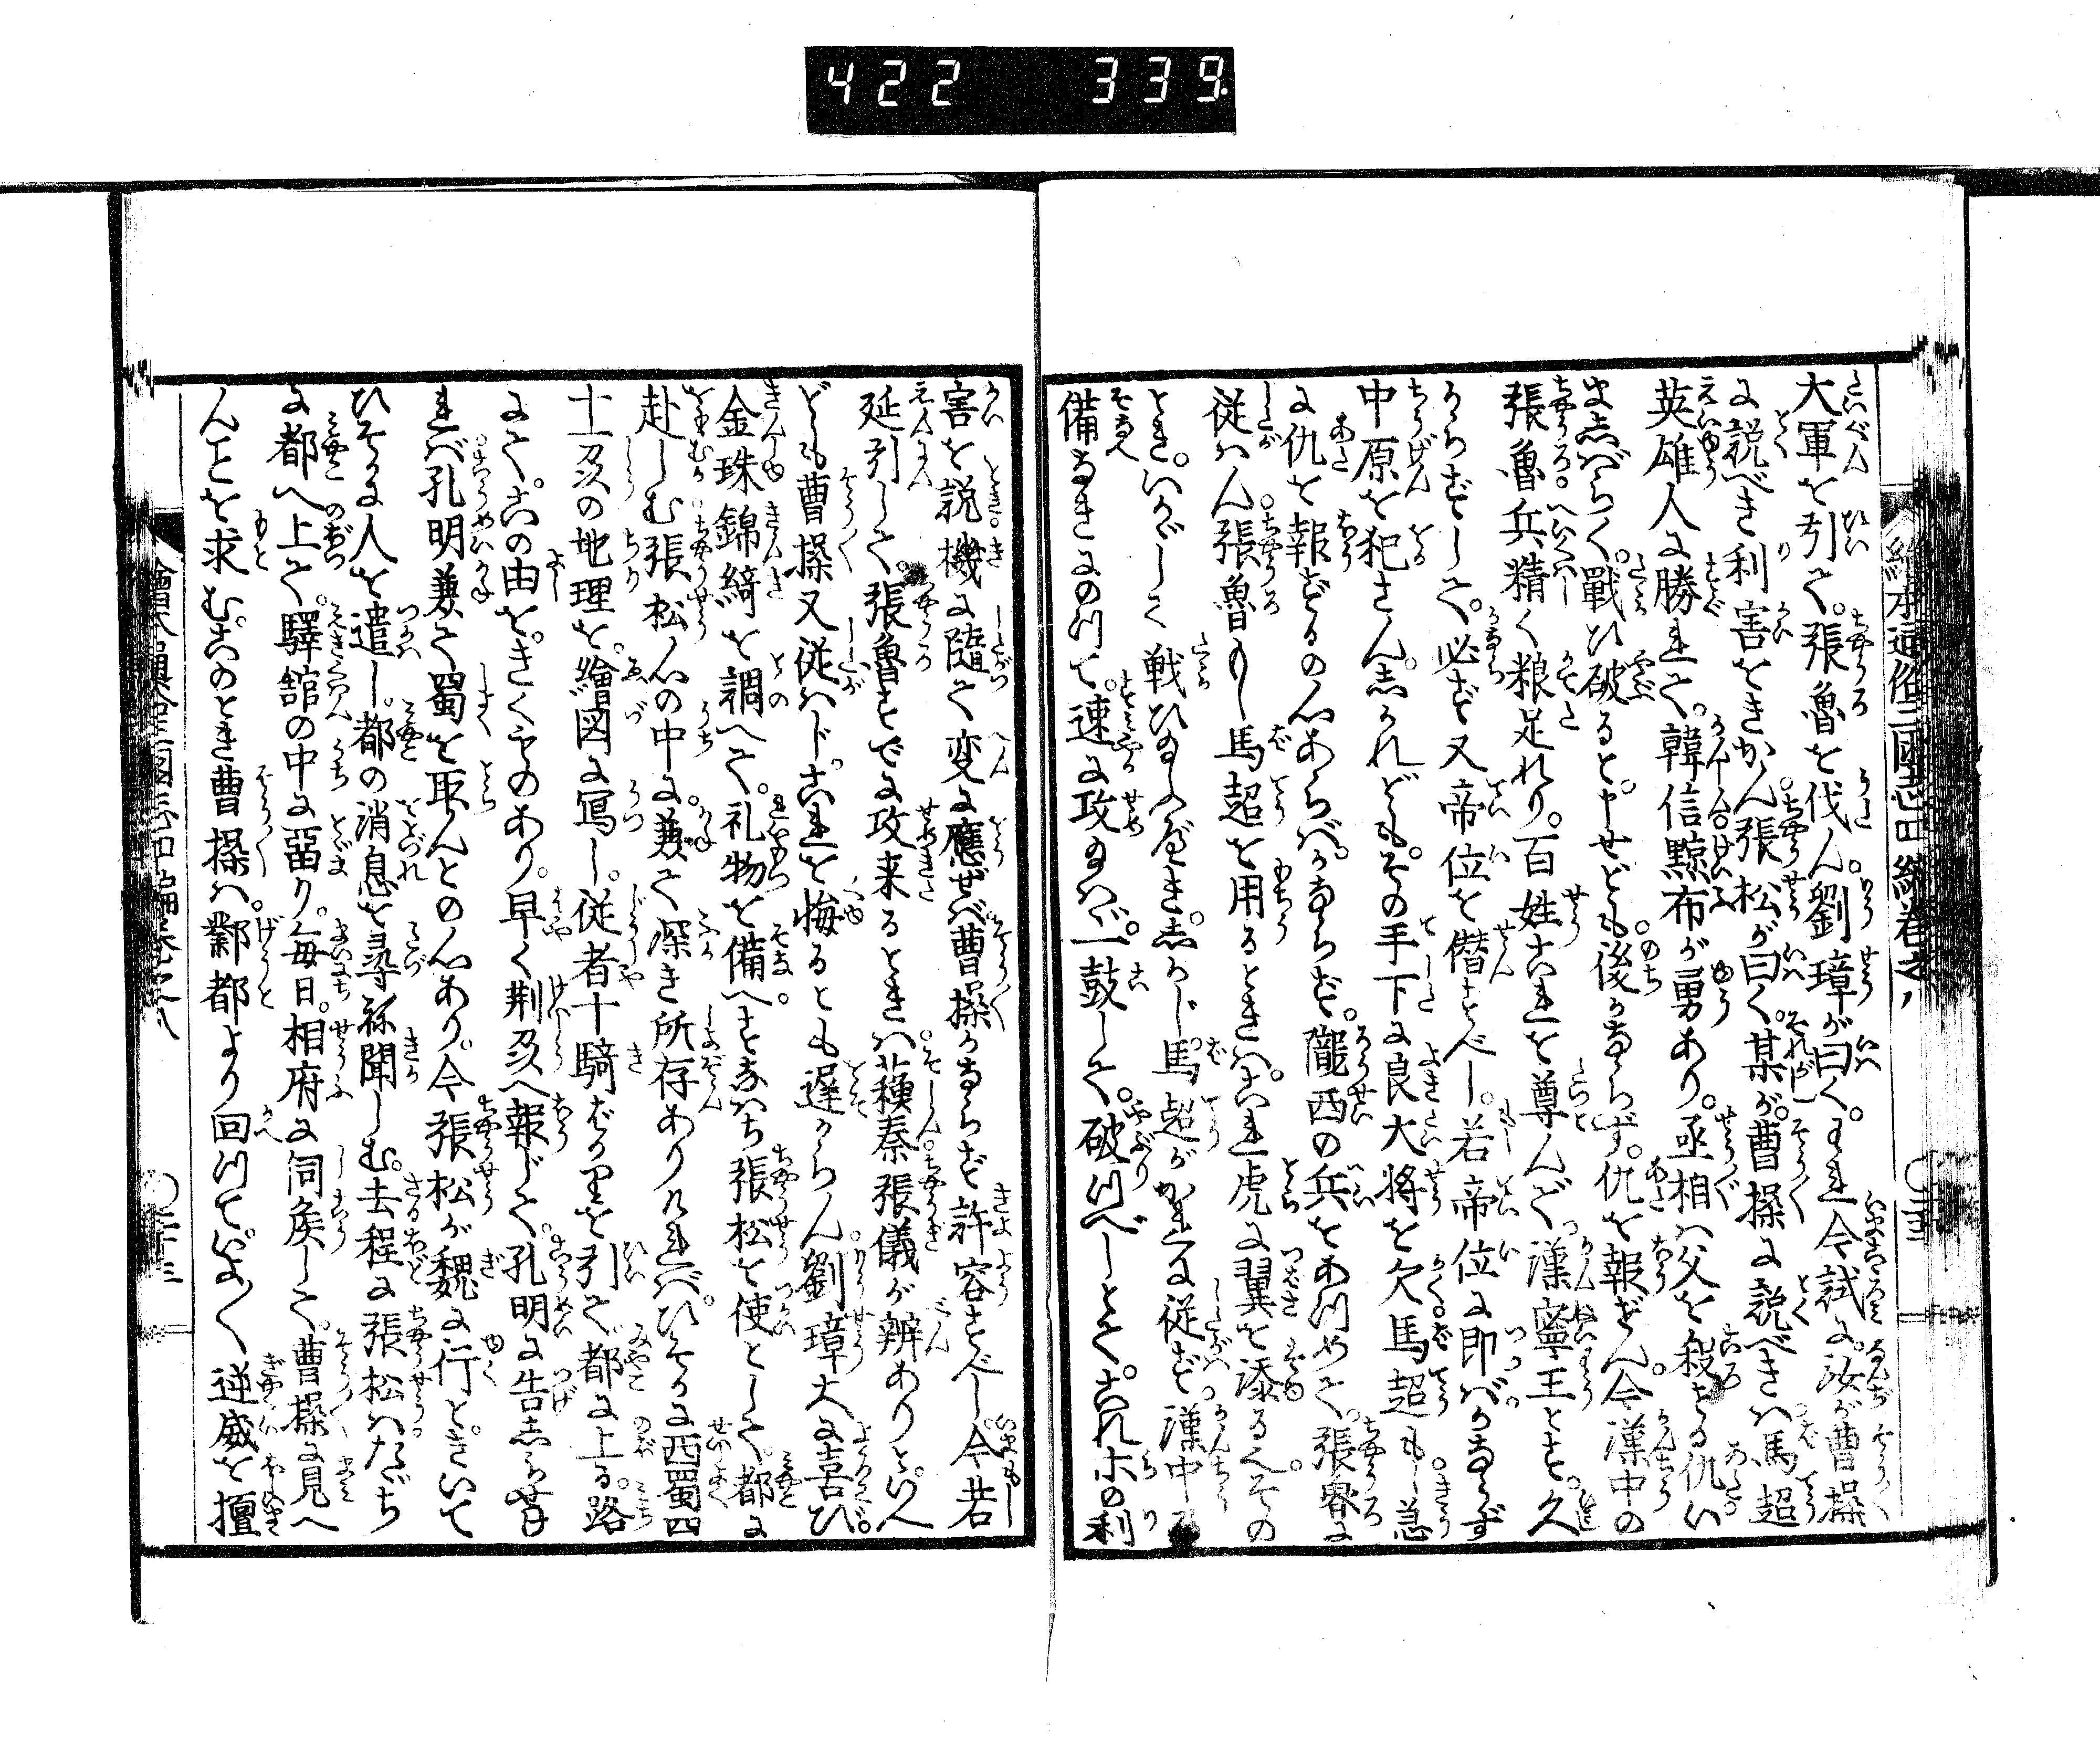 422 339.
大軍を引て。張魯を伐ん。劉璋が曰く。われ今試に。汝が曹操
に説べき利害をきかん。張松が曰く。某が。曹操に説べきハ。馬超
英雄人に勝れて。韓信黥布が勇あり。丞相ハ父を殺せる仇い
ましばらく。戰ひ破ると申せども。後かならず。仇を報ぜん。今漢中の
張魯。兵精く粮足れり。百姓これを尊んで。漢寧王とす。久
からずして。必ず又帝位を僭すべし。若帝位に即バ。かならず
中原を犯さん。しかれども。その手下に良大将を欠。馬超もし急
に仇を報ずるの心あらバ。かならず。隴西の兵をあつめて。張魯に
従ハん。張魯もし馬超を用るときハ。これ虎に翼を添るなり。その
とき。いかゞして戦ひ給ふべき。しかじ。馬超がかれに従ず。漢中の
備なきにのつて。速に攻給ハゞ。一鼓して。破つべしとて。これホの利
害を説。機に随て変に應ぜバ。曹操かならず許容すべし。今若
延引して。張魯すでに攻来るときハ。蘓秦張儀が辨ありといへ
ども。曹操又従ハじ。これを悔るとも遅からん。劉璋大に喜び。
金珠錦綺を調へて。礼物を備へ。すなハち張松を使として。都に
赴しむ。張松心の中に。兼て深き所存ありけれバ。ひそかに西蜀四
十一州の地理を。繪図に寫し。従者十騎ばかりを引て。都に上る。路
にて。この由を。きくものあり。早く荆州へ報じて。孔明に告しらせけ
れバ。孔明兼て蜀を取んとの心あり。今張松が魏に行と。きいて
ひそかに人を遣し。都の消息を尋祢聞しむ。去程に張松ハ。たゞち
に都へ上て。驛舘の中に畄り。毎日。相府に伺候して。曹操に見へ
んことを求む。このとき曹操ハ。鄴都より回つて。いよ〱逆威を擅